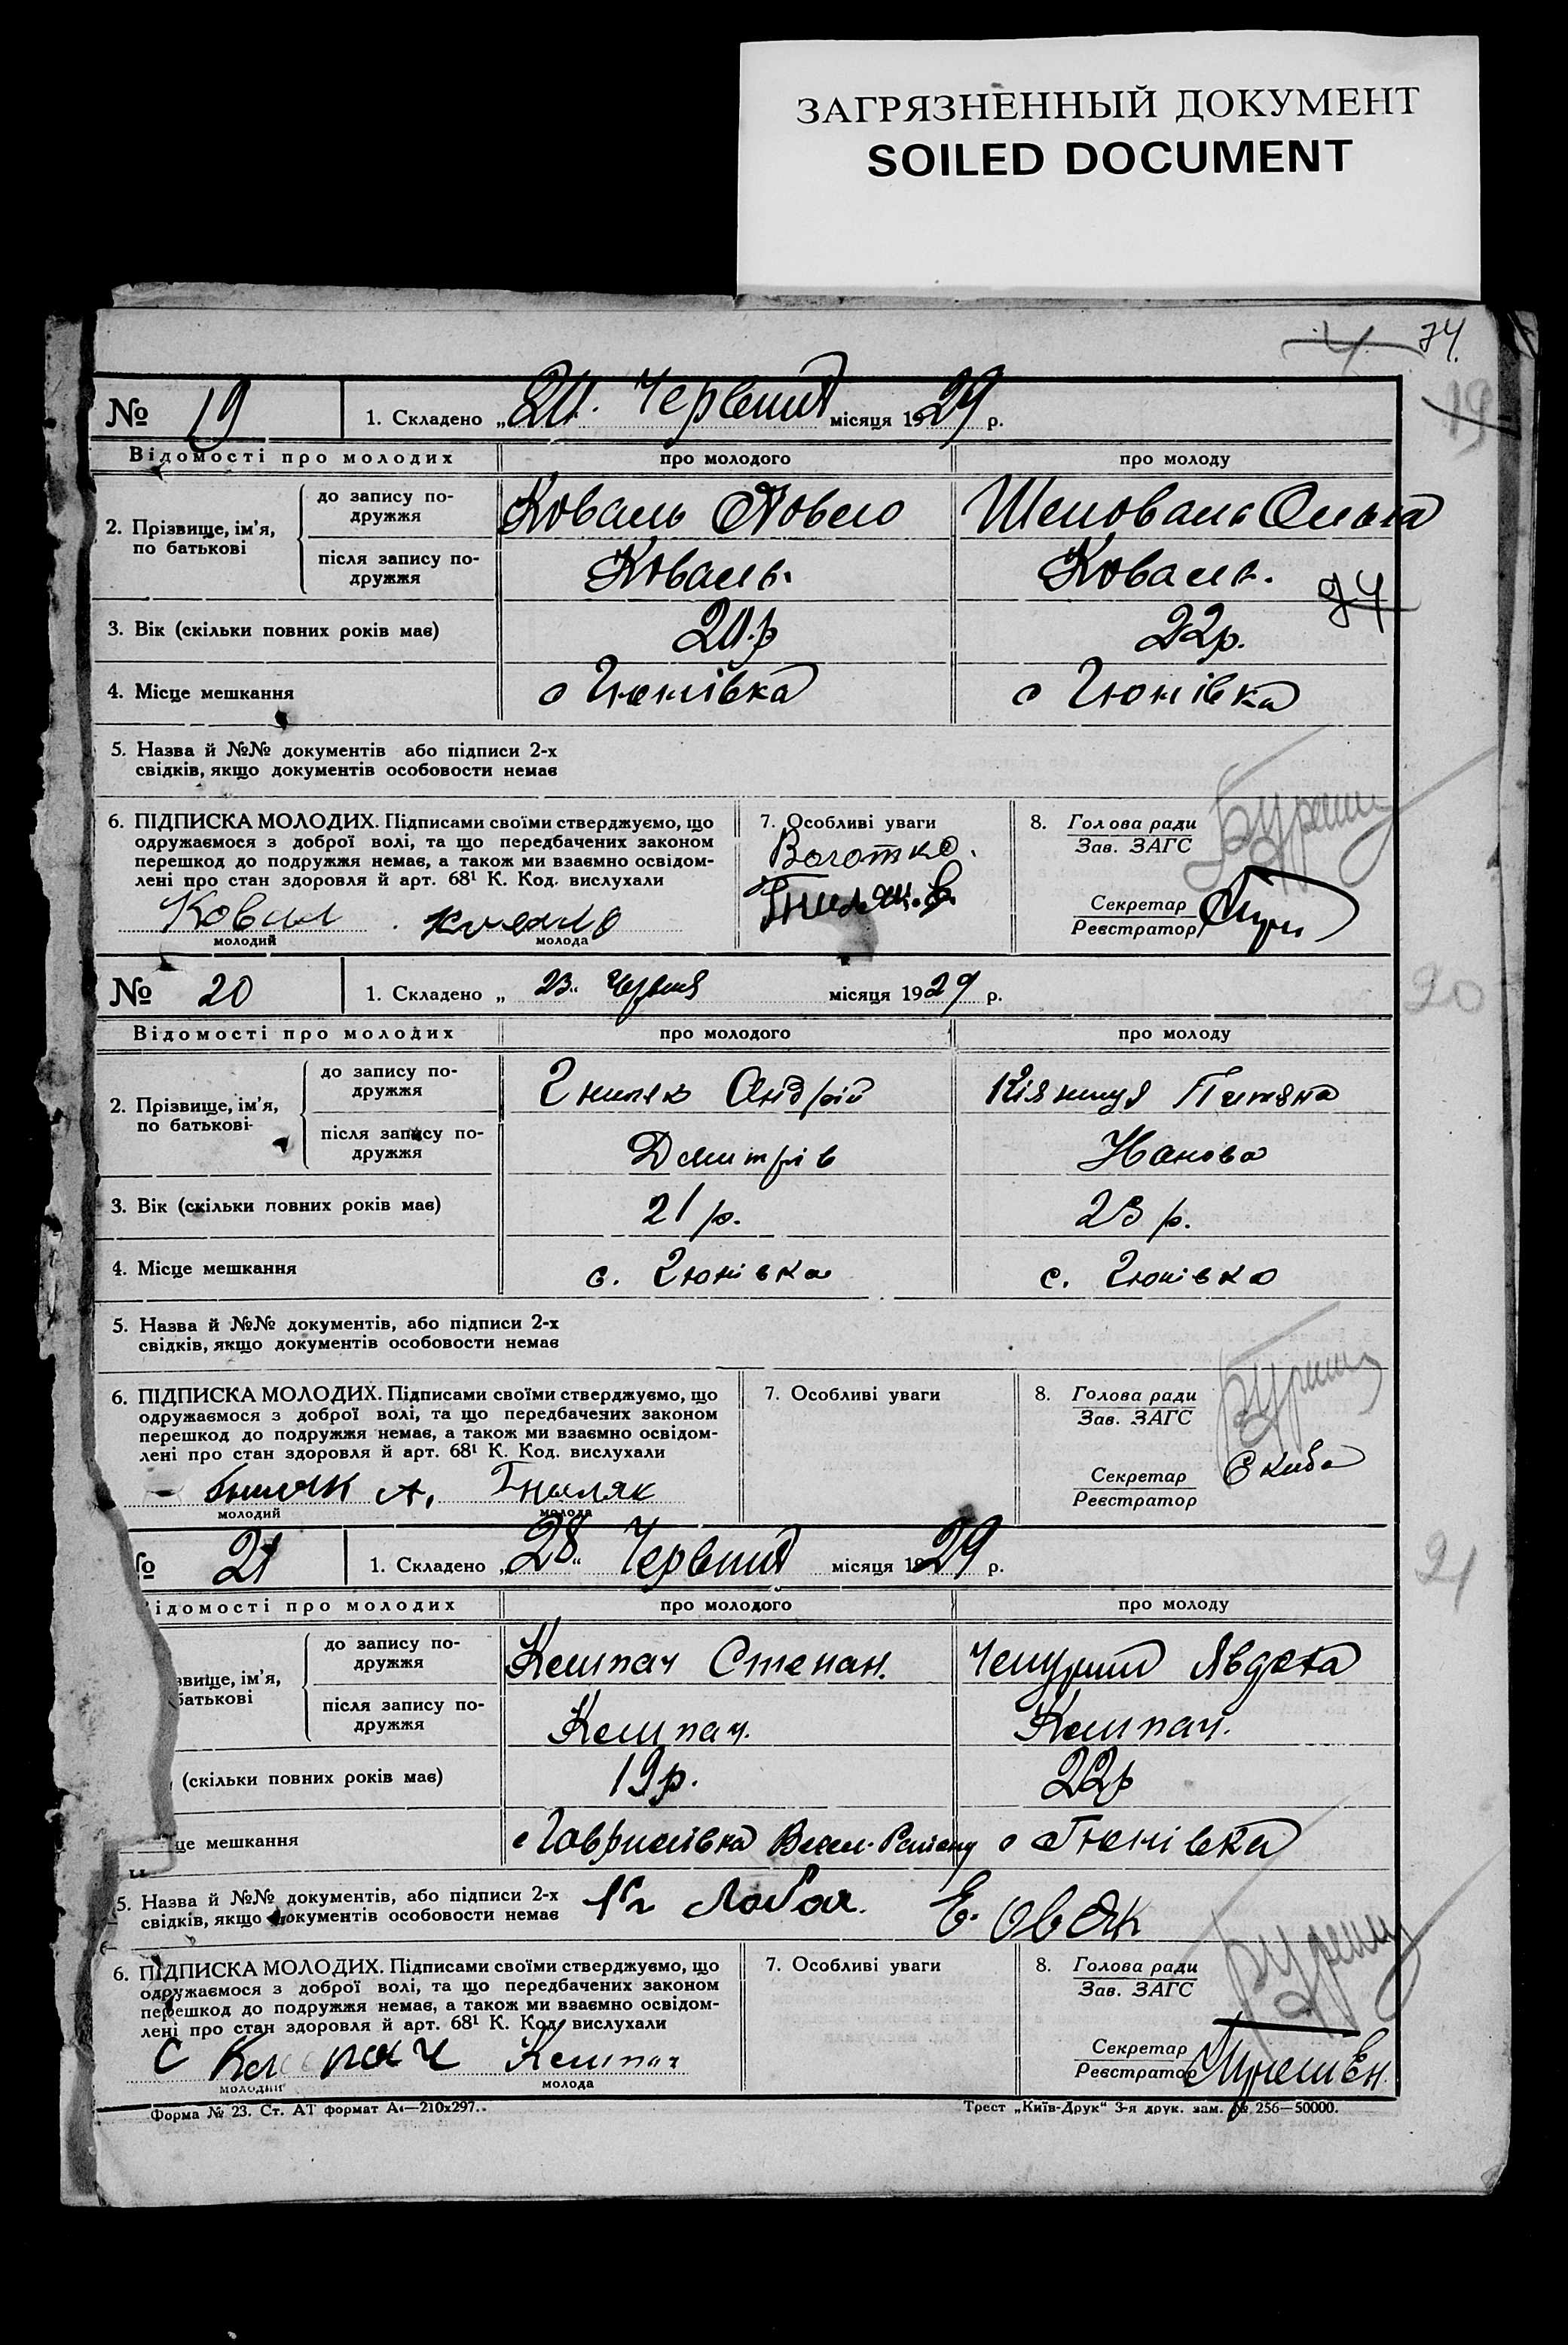 ЗАГРЯЗНЕННЫЙ ДОКУМЕНТ
SOILED DOCUMENT
4 74.
№ 19 1. Складено „ Червня місяця 1929 р. 19
Відомості про молодих про молодого про молоду
2. Прізвище, ім'я, по батькові
до запису подружжя Коваль Шаповаль Ольга
після запису подружжя Коваль. Коваль. 74
3. Вік (скільки повних років має) 22р.
4. Місце мешкання с Гюнівка с Гюнівка
5. Назва й №№ документів або підписи 2-х
свідків, якщо документів особовости немає
6. ПІДПИСКА МОЛОДИХ. Підписами своїми стверджуємо, що
одружаємося з доброї волі, та що передбачених законом
перешкод до подружжя немає, а також ми взаємно освідом-
лені про стан здоровля й арт. 68¹ К. Код. вислухали
молодий молода
7. Особливі уваги
8. Голова ради
Зав. ЗАГС
Секретар
Реєстратор
№ 20 1. Складено „ 23 " Червня місяця 1929 р. 20
Відомості про молодих про молодого про молоду
2. Прізвище, ім'я, по батькові
до запису подружжя Гниляк Андрій Кіяниця
після запису подружжя Дмитрів Іванова
3. Вік (скільки повних років має) 21 р. 23 р.
4. Місце мешкання с. Гюнівка с. Гюнівка
5. Назва й №№ документів, або підписи 2-х
свідків, якщо документів особовости немає
6. ПІДПИСКА МОЛОДИХ. Підписами своїми стверджуємо, що
одружаємося з доброї волі, та що передбачених законом
перешкод до подружжя немає, а також ми взаємно освідом-
лені про стан здоровля й арт. 68¹ К. Код. вислухали
Гниляк А. Гниляк
молодий молода
7. Особливі уваги
8. Голова ради
Зав. ЗАГС
Секретар Скиба
Реєстратор
№ 21 1. Складено „28" Червня місяця 1929 р. 21
Відомості про молодих про молодого про молоду
звище, ім'я, батькові
до запису подружжя Степан. Явдоха
після запису подружжя
(скільки повних років має) 19р. 22р
це мешкання с Гавриливка Весел. Району с Гюнівка
5. Назва й №№ документів, або підписи 2-х
свідків, якщо документів особовости немає
6. ПІДПИСКА МОЛОДИХ. Підписами своїми стверджуємо, що
одружаємося з доброї волі, та що передбачених законом
перешкод до подружжя немає, а також ми взаємно освідом-
лені про стан здоровля й арт. 68¹ К. Код. вислухали
молодий молода
7. Особливі уваги
8. Голова ради
Зав. ЗАГС
Секретар
Реєстратор
Форма № 23. Ст. АТ формат А₄—210х297.
Трест „Київ-Друк" 3-я друк. зам. № 256—50000.